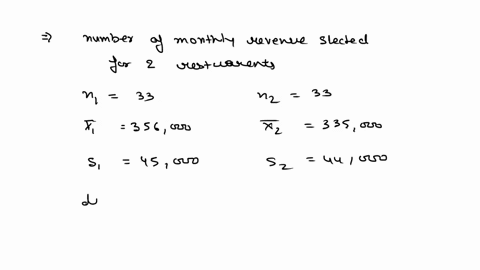 ⇒ number of monthly revenue slected
for 2 restuarents
n₁ = 33 n₂ = 33
x̄₁ = 356,000 x̄₂ = 335,000
s₁ = 45,000 s₂ = 44,000
d